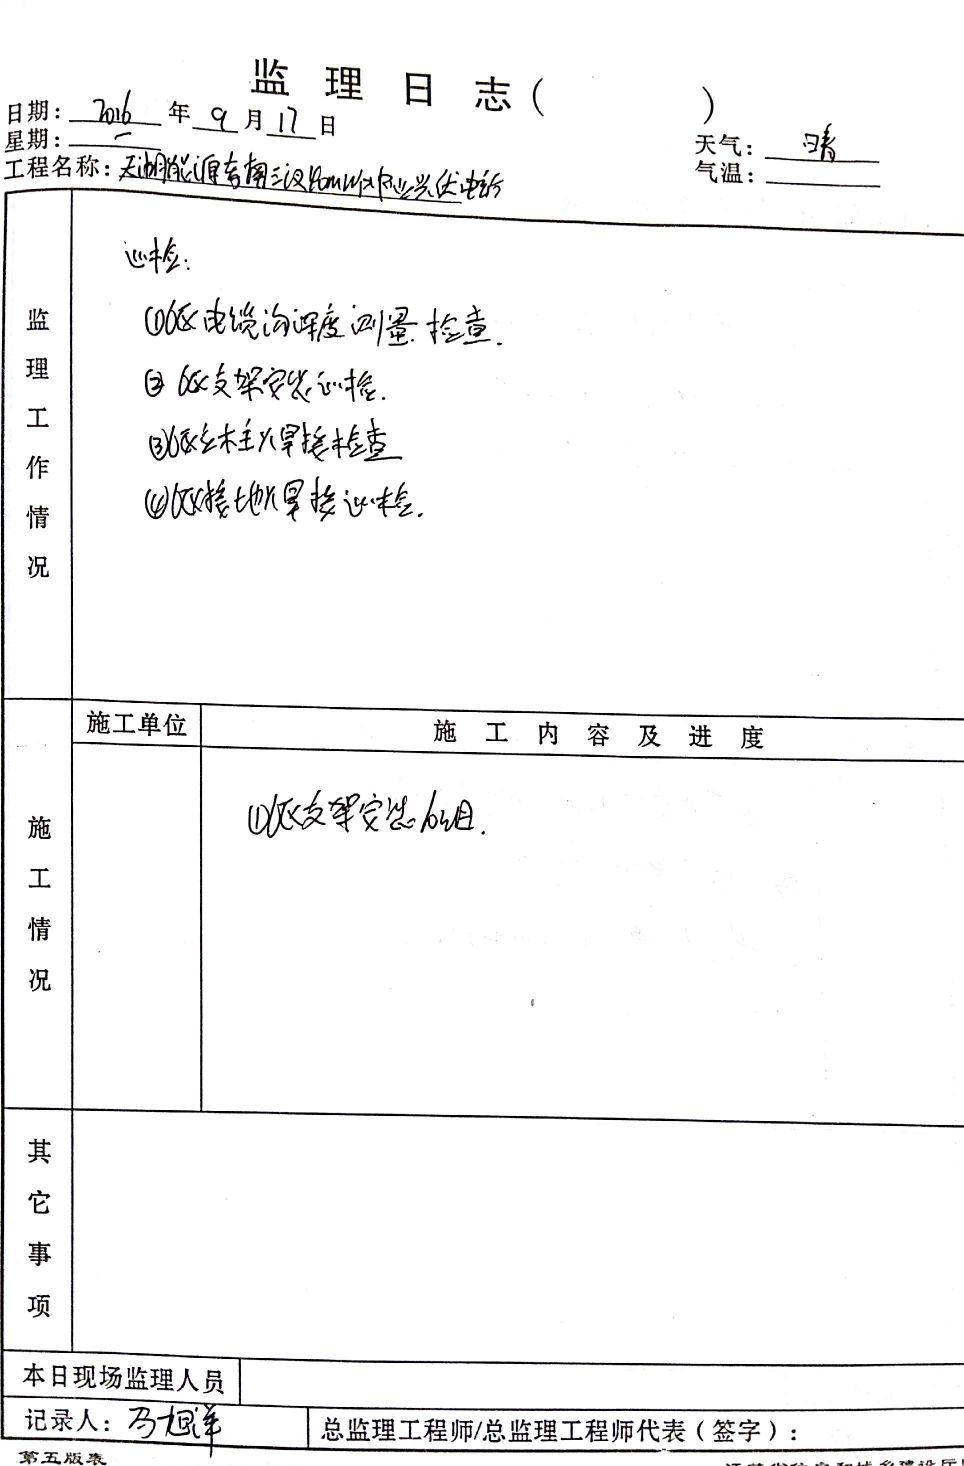 监理日志（ ）
日期：2016年9月17日
星期：一
天气：晴
工程名称：天湖能源 三汊 农业光伏电站
气温：
监理工作情况
巡检：
①6区电缆沟深度测量.检查.
② 6区支架安装巡检.
③6区立柱主焊接检查
④6区接地焊接巡检.
施工单位
施工内容及进度
施工情况
①6区支架安装6组.
其它事项
本日现场监理人员
记录人：马旭洋
总监理工程师/总监理工程师代表（签字）：
第五版表